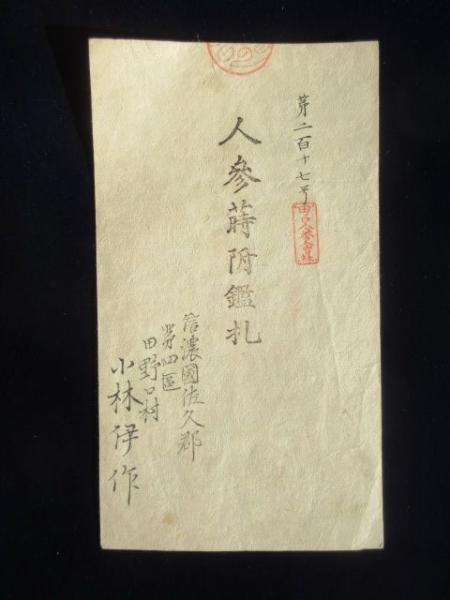 第二百十七号
人参蒔附鑑札
信濃國佐久郡
第四區
田野口村
小林伊作